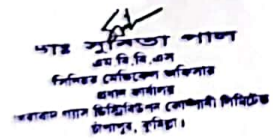 ডাঃ সুমিতা পাল
এম,বি,বি,এস
সিনিয়র মেডিকেল অফিসার
প্রধান কার্যালয়
গ্যাস ডিস্ট্রিবিউশন কোম্পানী লিমিটেড
চাঁপাপুর, কুমিল্লা।